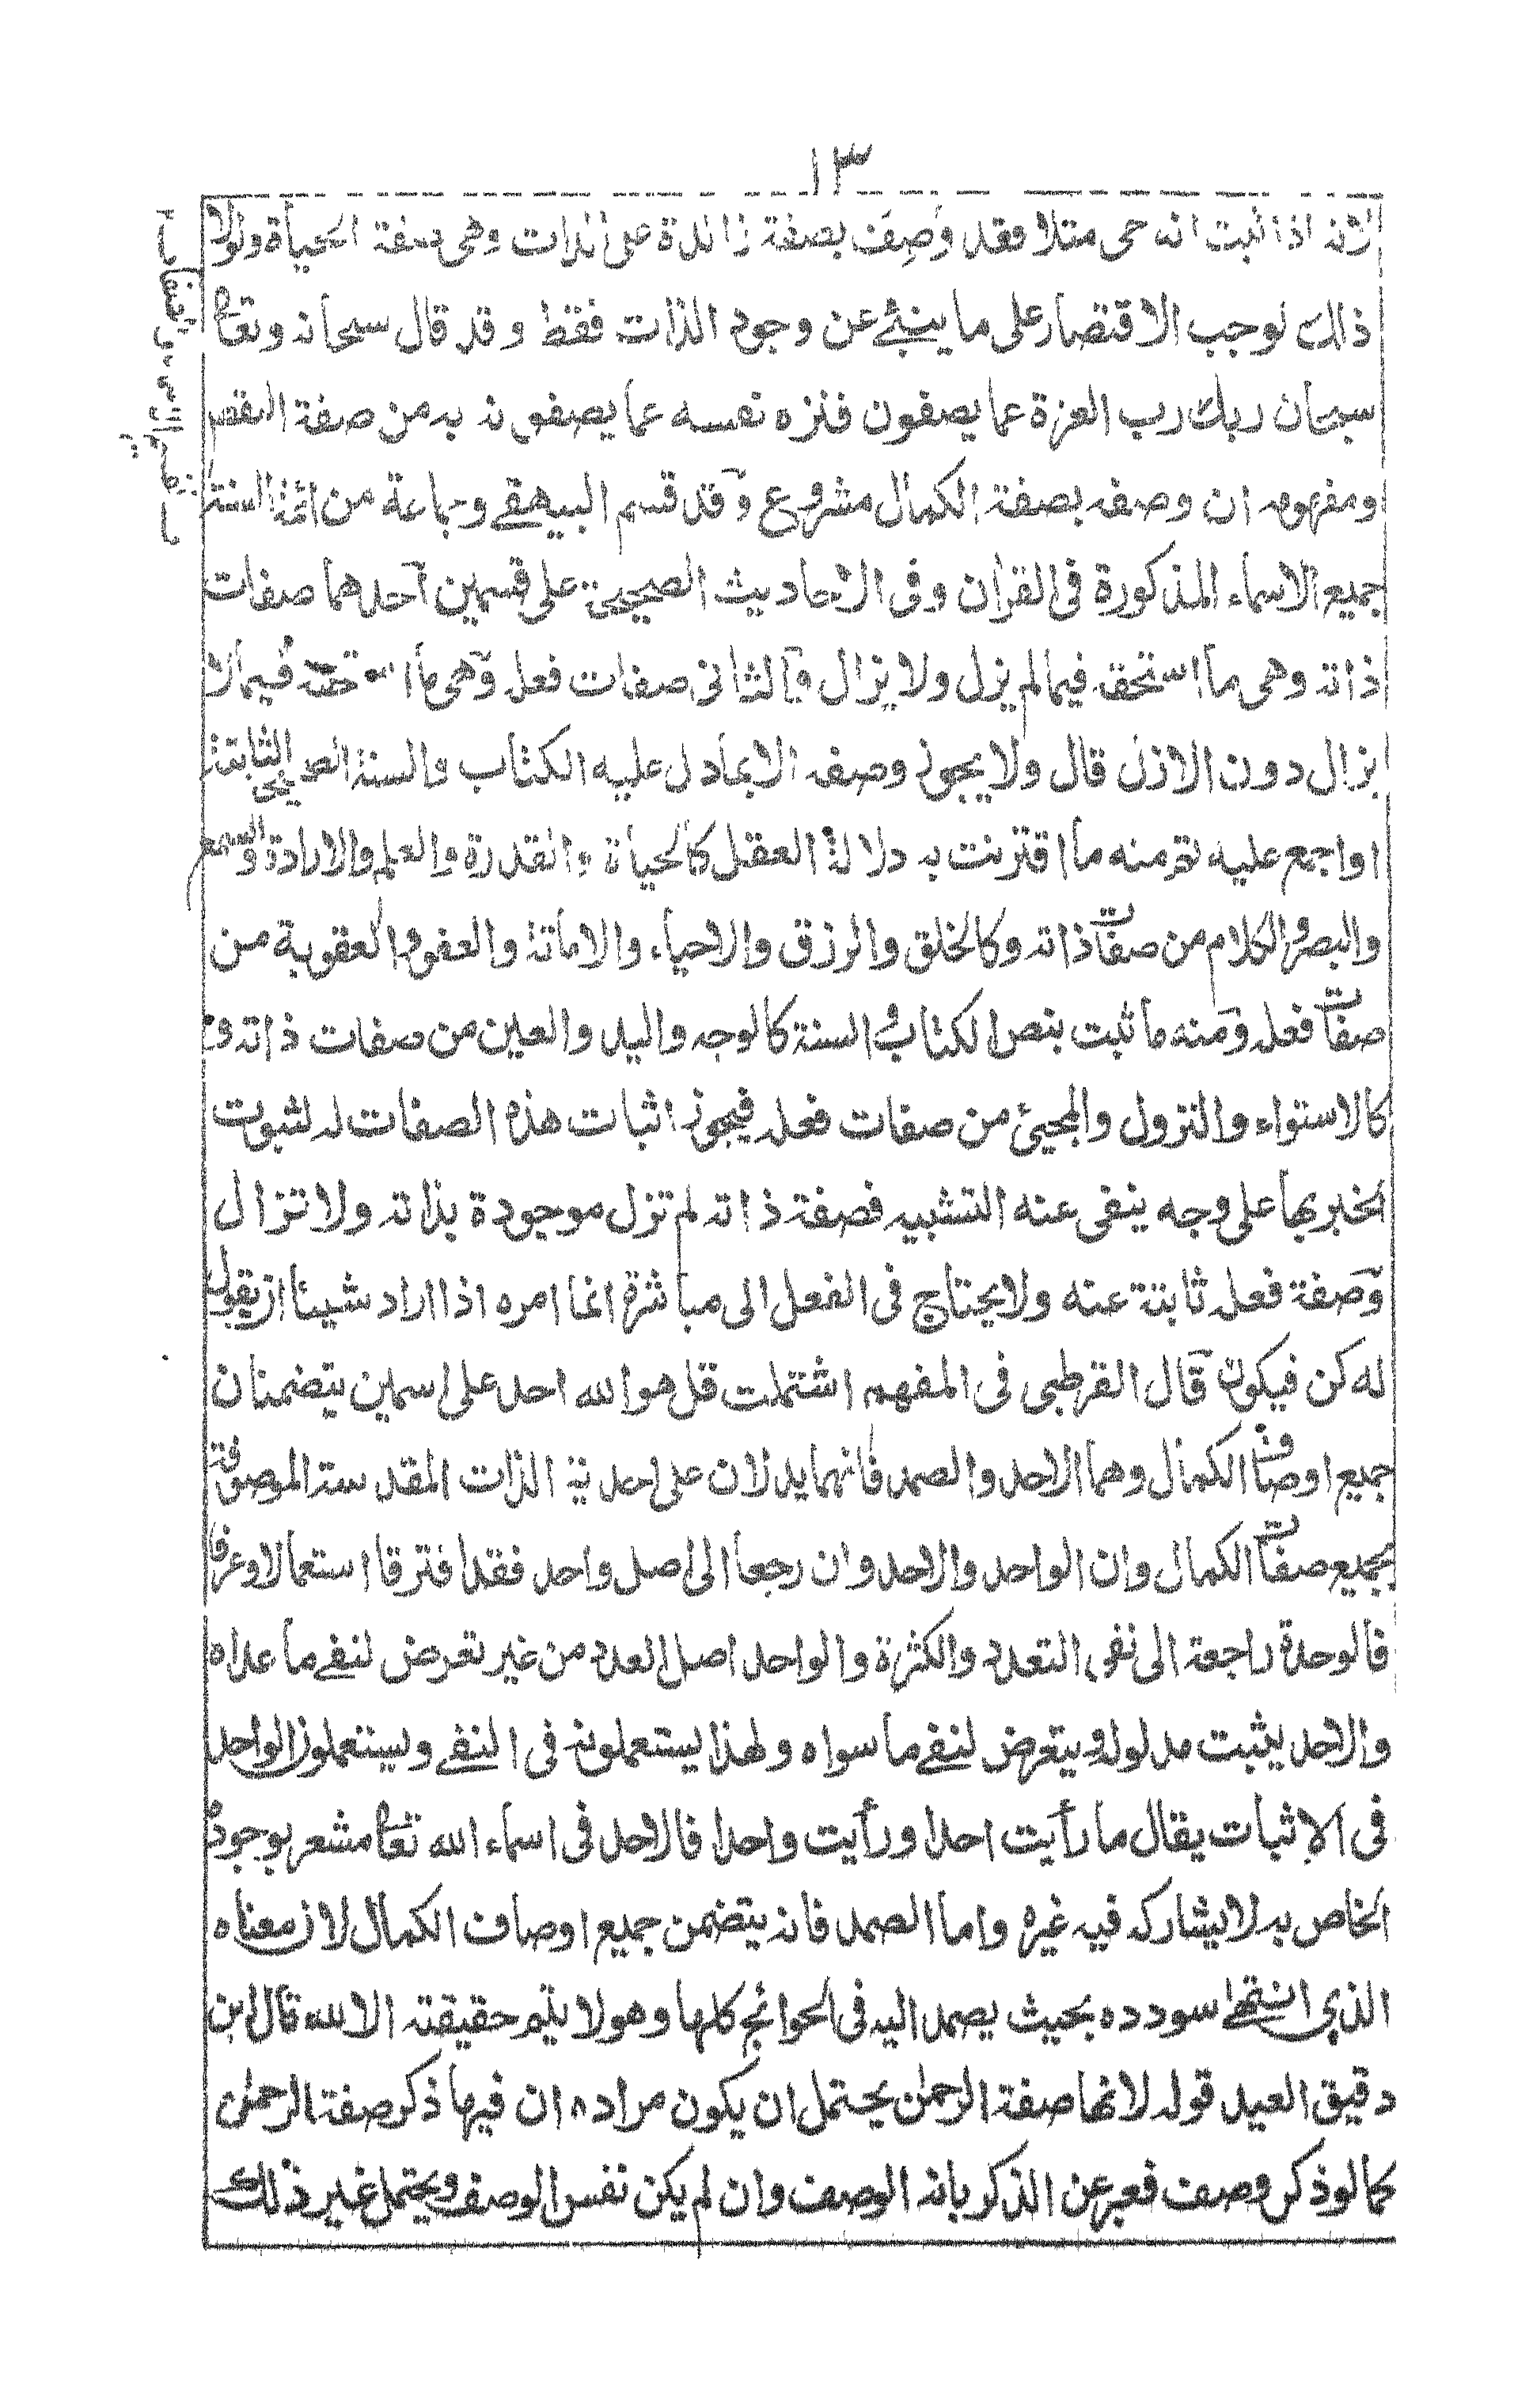 ١٣
لانه اذا ثبت انه حى مثلا فقد وصف بصفة زائدة على الذات وهى صفة الحياة ولولا
ذلك لوجب الاقتصار على ما ينبئ عن وجود الذات فقط وقد قال سبحانه وتعالى
سبحان ربك رب العزة عما يصفون فنزه نفسه عما يصفونه به من صفة النقص
ومفهومه ان وصفه بصفة الكمال مشروع وقد قسم البيهقى وجماعة من ائمة السنة
جميع الاسماء المذكورة فى القران وفى الاحاديث الصحيحة على قسمين احدهما صفات
ذاته وهى ما استحقه فيما لم يزل ولا يزال والثانى صفات فعله وهى ما استحقه فيما لا
يزال دون الازل قال ولا يجوز وصفه الا بما دل عليه الكتاب والسنة الصحيحة الثابتة
او اجمع عليه ثم منه ما اقترنت به دلالة العقل كالحياة والقدرة والعلم والارادة والسمع
والبصر والكلام من صفات ذاته وكالخلق والرزق والاحياء والاماتة والعفو والعقوبة من
صفات فعله ومنه ما ثبت بنص الكتاب والسنة كالوجه واليد والعين من صفات ذاته و
كالاستواء والنزول والمجيئ من صفات فعله فيجوز اثبات هذه الصفات له لثبوت
الخبر بها على وجه ينفى عنه التشبيه فصفة ذاته لم تزل موجودة بذاته ولا تزال
وصفة فعله ثابتة عنه ولا يحتاج فى الفعل الى مباشرة انما امره اذا اراد شيئا ان يقول
له كن فيكون قال القرطبى فى المفهم اشتملت قل هو الله احد على اسمين يتضمنان
جميع اوصاف الكمال وهما الاحد والصمد فانهما يدلان على احدية الذات المقدسة الموصوفة
بجميع صفات الكمال وان الواحد والاحد وان رجعا الى اصل واحد فقد افترقا استعمالا وعرفا
فالوحدة راجعة الى نفى التعدد والكثرة والواحد اصل العدد من غير تعرض لنفى ما عداه
والاحد يثبت مدلوله ويتعرض لنفى ما سواه ولهذا يستعملونه فى النفى ويستعملون الواحد
فى الاثبات يقال ما رأيت احدا ورأيت واحدا فالاحد فى اسماء الله تعالى مشعر بوجوده
الخاص به لا يشاركه فيه غيره واما الصمد فانه يتضمن جميع اوصاف الكمال لان معناه
الذى انتهى سودده بحيث يصمد اليه فى الحوائج كلها وهو لا يتم حقيقته الا لله قال ابن
دقيق العيد قوله لانها صفة الرحمن يحتمل ان يكون مراده ان فيها ذكر صفة الرحمن
كما لو ذكر وصف فعبر عن الذكر بانه الوصف وان لم يكن نفس الوصف ويحتمل غير ذلك